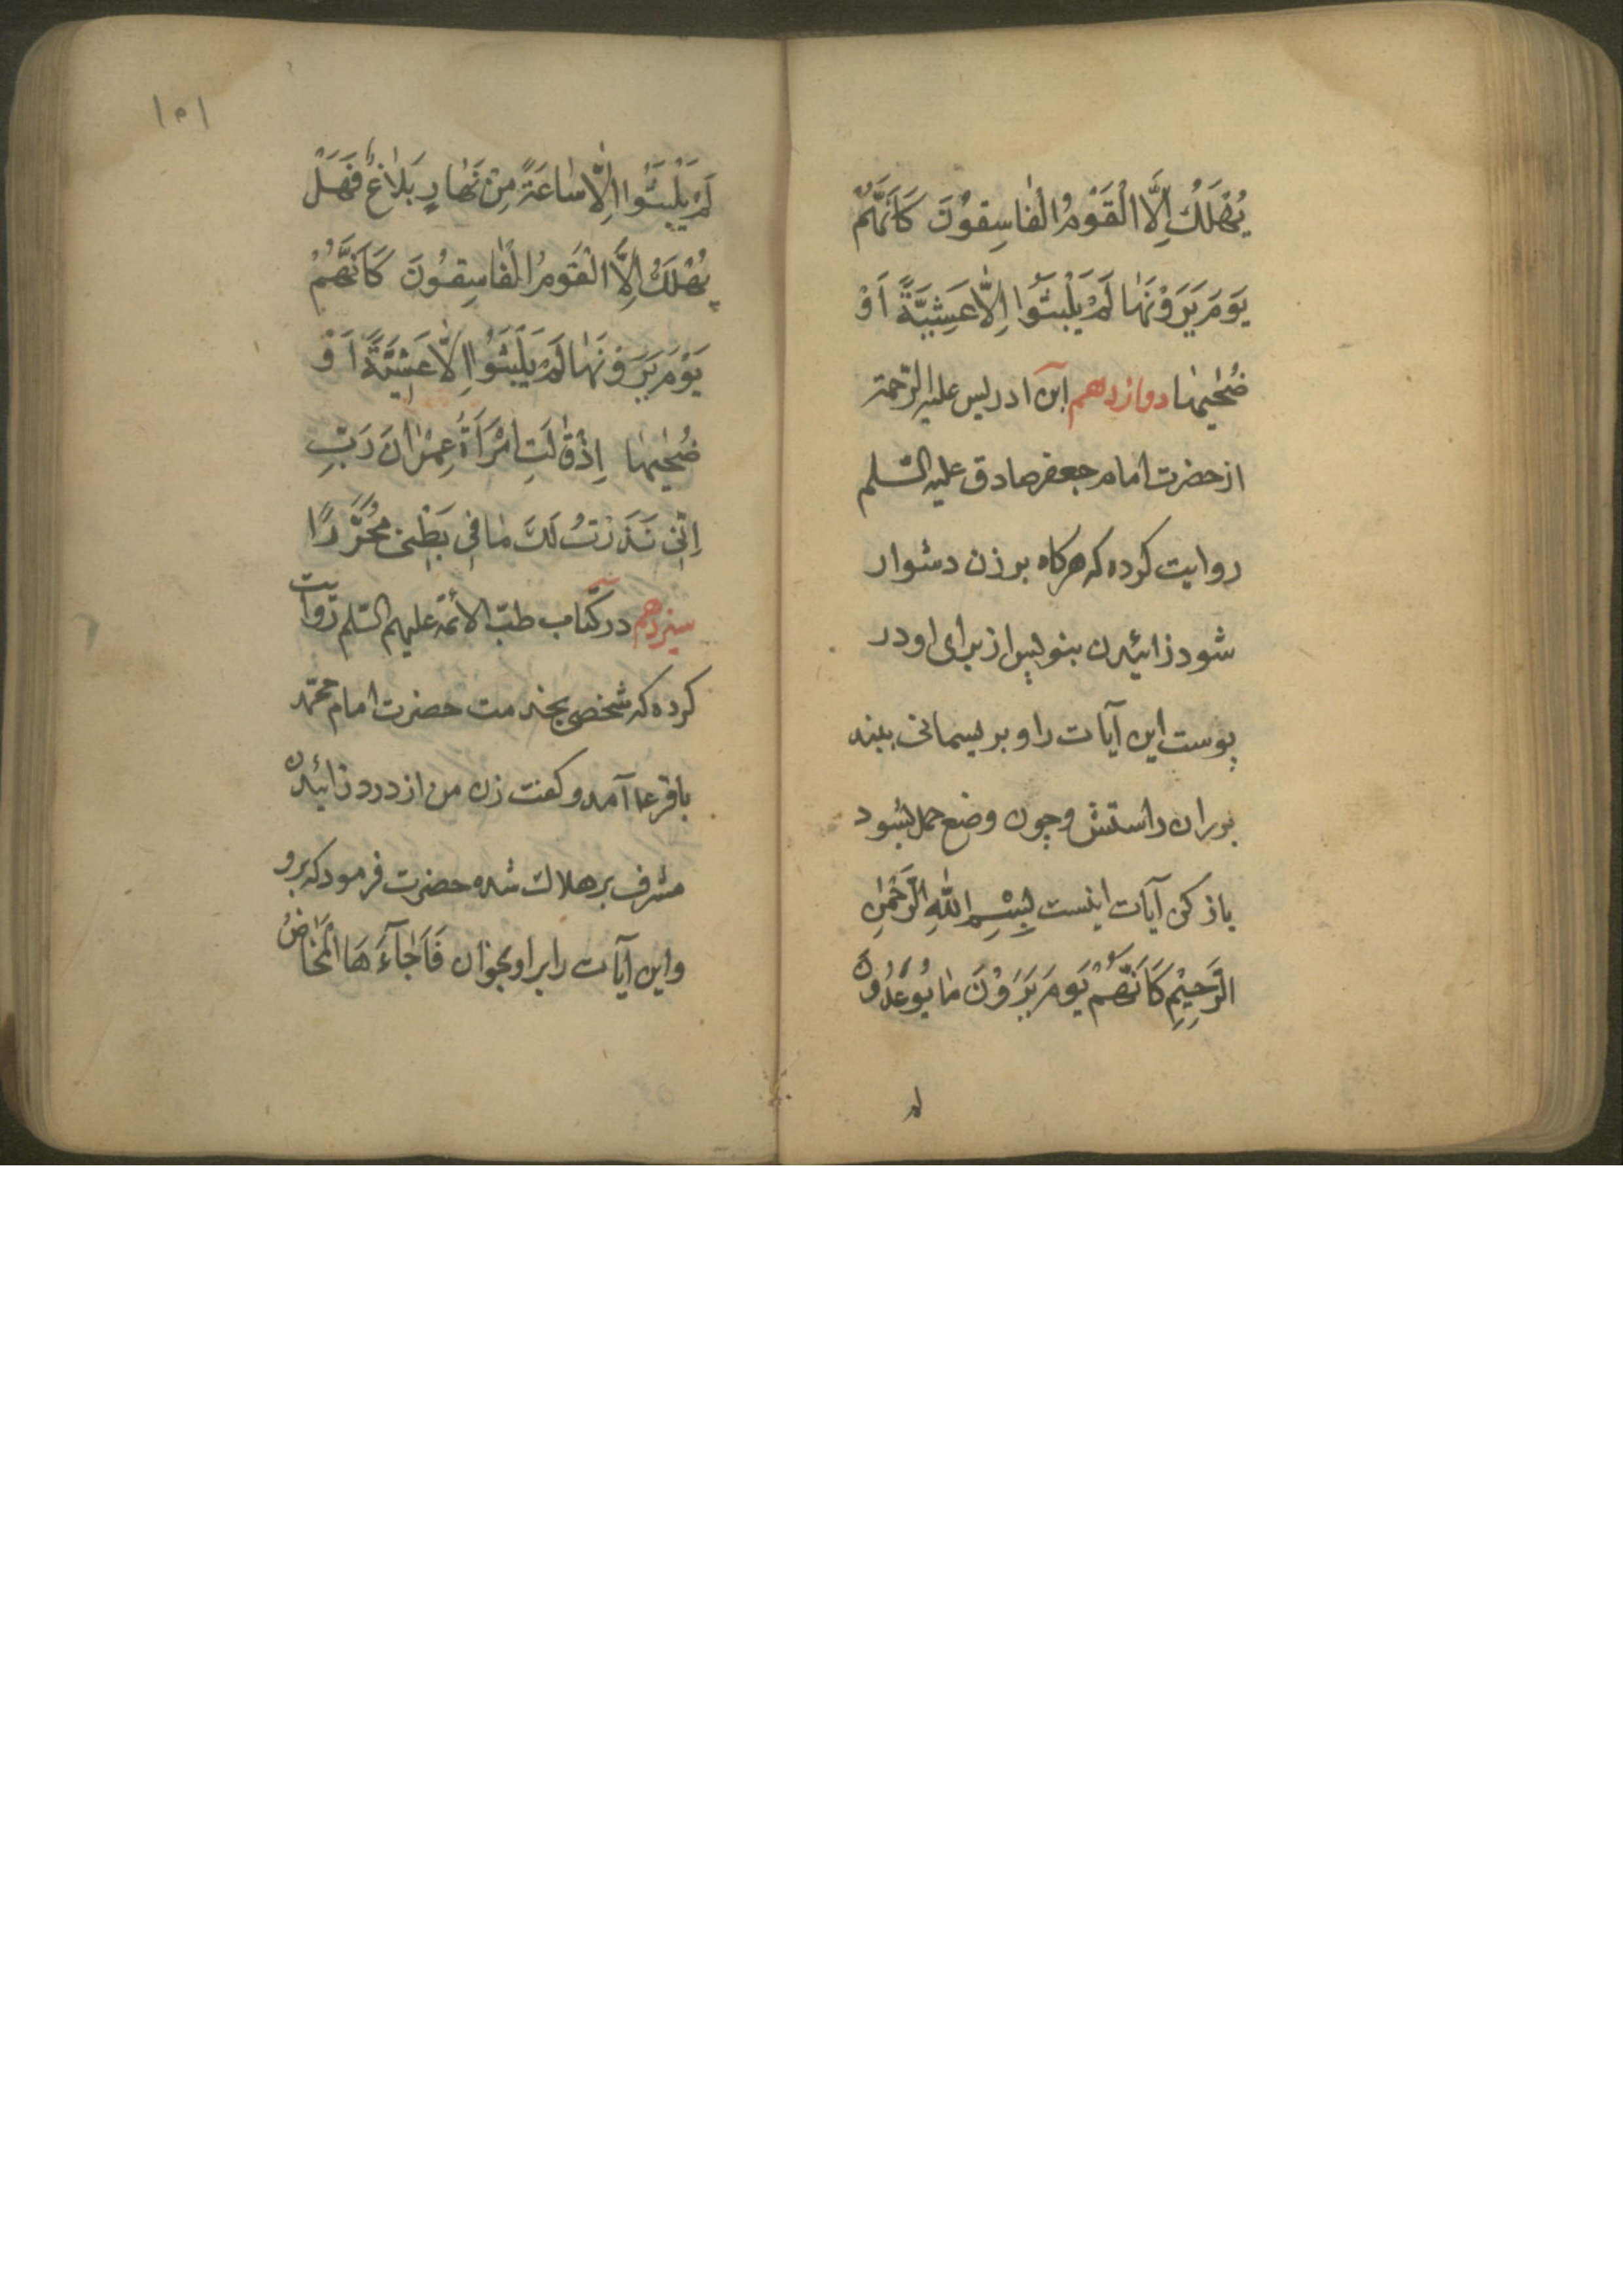 يُهْلَكُ اِلَّا الْقَوْمُ الْفٰاسِقُونَ كَاَنَّهُمْ
يَوْمَ يَرَوْنَهٰا لَمْ يَلْبَثُوا اِلّٰا عَشِيَّةً اَوْ
ضُحٰيهٰا دوازدهم ابن ادریس علیه الرّحمة
از حضرت امام جعفر صادق علیه السّلم
روایت کرده که هرکاه بر زن دشوار
شود زائیدن بنویس از برای او در
پوست این آیات را و بریسمانی ببند
بر ران راستش و چون وضع حمل بشود
باز کن آیات اینست بِسْمِ اللّٰهِ الرَّحْمٰنِ
الرَّحِيْمِ كَاَنَّهُمْ يَوْمَ يَرَوْنَ مٰا يُوعَدُونَ
لم
۱۵۱
لَمْ يَلْبَثُوا اِلّٰا سٰاعَةً مِنْ نَهٰارٍ بَلٰاغٌ فَهَلْ
يُهْلَكُ اِلَّا الْقَوْمُ الْفٰاسِقُونَ كَاَنَّهُمْ
يَوْمَ يَرَوْنَهٰا لَمْ يَلْبَثُوا اِلّٰا عَشِيَّةً اَوْ
ضُحٰيهٰا اِذْ قٰالَتِ امْرَاَةُ عِمْرٰانَ رَبِّ
اِنّى نَذَرْتُ لَكَ مٰا فِي بَطْنِي مُحَرَّرًا
سیزدهم در کتاب طبّ الائمّه علیهم السّلم روایت
کرده که شخصی بخدمت حضرت امام محمّد
باقر ع آمد و کفت زن من از درد زائیدن
مشرف بر هلاک شده حضرت فرمود که برو
و این آیات را بر او بخوان فَاَجٰآءَهَا الْمَخٰاضُ